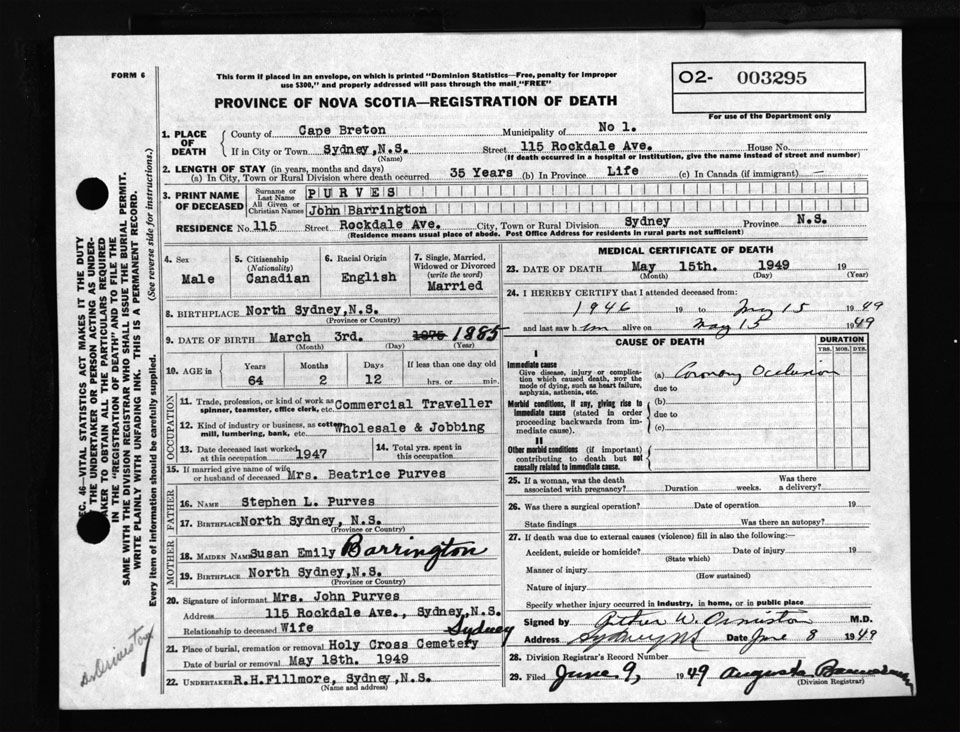 FORM 6
This form if placed in an envelope, on which is printed "Dominion Statistics—Free, penalty for improper
use $300," and properly addressed will pass through the mail "FREE"
PROVINCE OF NOVA SCOTIA—REGISTRATION OF DEATH
O2- 003295
For use of the Department only
1. PLACE OF DEATH
County of Cape Breton Municipality of No 1.
If in City or Town Sydney, N.S. Street 115 Rockdale Ave. House No.
(Name) (If death occurred in a hospital or institution, give the name instead of street and number)
2. LENGTH OF STAY (in years, months and days)
(a) In City, Town or Rural Division where death occurred 35 Years (b) In Province Life (c) In Canada (if immigrant) —
3. PRINT NAME OF DECEASED
Surname or Last Name PURVES
All Given or Christian Names John Barrington
RESIDENCE No. 115 Street Rockdale Ave. City, Town or Rural Division Sydney Province N.S.
(Residence means usual place of abode. Post Office Address for residents in rural parts not sufficient)
4. Sex Male
5. Citizenship (Nationality) Canadian
6. Racial Origin English
7. Single, Married, Widowed or Divorced (write the word) Married
8. BIRTHPLACE North Sydney, N.S.
(Province or Country)
9. DATE OF BIRTH March 3rd. 1875 1885
(Month) (Day) (Year)
10. AGE in Years Months Days If less than one day old
64 2 12 hrs. or min.
OCCUPATION
11. Trade, profession, or kind of work as spinner, teamster, office clerk, etc. Commercial Traveller
12. Kind of industry or business, as cotton mill, lumbering, bank, etc. Wholesale & Jobbing
13. Date deceased last worked at this occupation 1947
14. Total yrs. spent in this occupation.
15. If married give name of wife or husband of deceased Mrs. Beatrice Purves
FATHER
16. NAME Stephen L. Purves
17. BIRTHPLACE North Sydney, N.S.
(Province or Country)
MOTHER
18. MAIDEN NAME Susan Emily Barrington
19. BIRTHPLACE North Sydney, N.S.
(Province or Country)
20. Signature of informant Mrs. John Purves
Address 115 Rockdale Ave., Sydney, N.S.
Relationship to deceased Wife
Sydney
21. Place of burial, cremation or removal Holy Cross Cemetery
Date of burial or removal May 18th. 1949
22. UNDERTAKER R.H.Fillmore, Sydney, N.S.
(Name and address)
MEDICAL CERTIFICATE OF DEATH
23. DATE OF DEATH May 15th. 1949 19
(Month) (Day) (Year)
24. I HEREBY CERTIFY that I attended deceased from:
1946 19 to May 15 1949
and last saw him alive on May 15 1949
CAUSE OF DEATH
DURATION
YRS. MOS. DYS.
I
Immediate cause
Give disease, injury or complication which caused death, NOT the mode of dying, such as heart failure, asphyxia, asthenia, etc.
(a) Coronary Occlusion
due to
Morbid conditions, if any, giving rise to immediate cause (stated in order proceeding backwards from immediate cause).
(b)
due to
(c)
II
Other morbid conditions (if important) contributing to death but not causally related to immediate cause.
25. If a woman, was the death associated with pregnancy? Duration weeks. Was there a delivery?
26. Was there a surgical operation? Date of operation 19
State findings Was there an autopsy?
27. If death was due to external causes (violence) fill in also the following:—
Accident, suicide or homicide? Date of injury 19
(State which)
Manner of injury
(How sustained)
Nature of injury
Specify whether injury occurred in industry, in home, or in public place
Signed by Arthur W. Ormiston M.D.
Address Sydney NS Date June 8 1949
28. Division Registrar's Record Number
29. Filed June 9, 1949 Augusta
(Division Registrar)
EC. 46—VITAL STATISTICS ACT MAKES IT THE DUTY
THE UNDERTAKER OR PERSON ACTING AS UNDER-
TAKER TO OBTAIN ALL THE PARTICULARS REQUIRED
IN THE "REGISTRATION OF DEATH" AND TO FILE THE
SAME WITH THE DIVISION REGISTRAR WHO SHALL ISSUE THE BURIAL PERMIT.
WRITE PLAINLY WITH UNFADING INK. THIS IS A PERMANENT RECORD.
Every item of information should be carefully supplied. (See reverse side for instructions.)